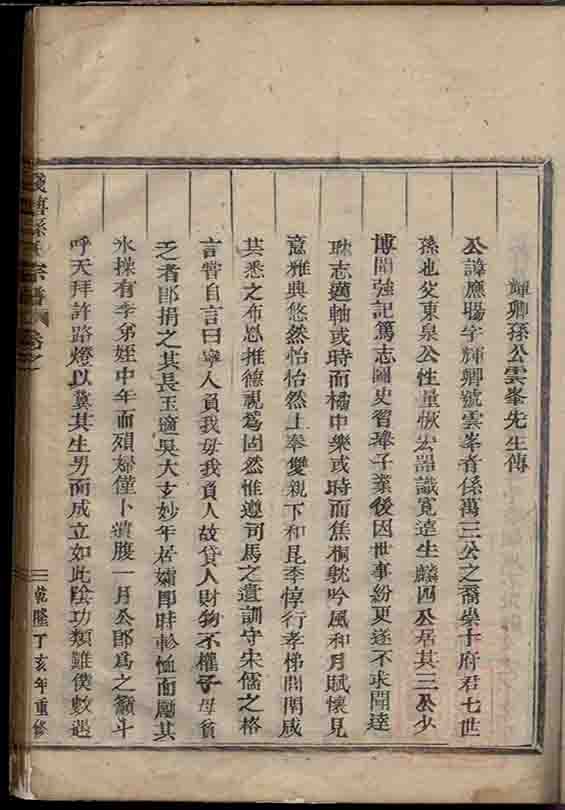 輝卿孫公雲峯先生傳
公諱應暘字輝卿號雲峯者係萬三公之裔榮十府君七世
孫也父東泉公性量恢宏器識寬達生麟四公居其三公少
博聞強記篤志圖史習舉子業後因世事紛更遂不求聞達
耽志邁軸或時而橘中樂或時而焦桐躭吟風和月賦懷見
意雅興悠然怡怡然上奉雙親下和昆季惇行孝悌閭閈咸
共悉之布恩推德視為固然惟遵司馬之遺訓守宋儒之格
言嘗自言曰寧人負我毋我負人故貸人財物不權子母貧
乏者即捐之其長玉適吳大玄妙年居孀即時軫恤而勵其
氷操有季弟姪中年而殞婦僅卜遺腹一月公即為之籲斗
呼天拜許路燈以冀其生男而成立如此陰功類難僕數遇
孫氏宗譜 卷之
乾隆丁亥年重修